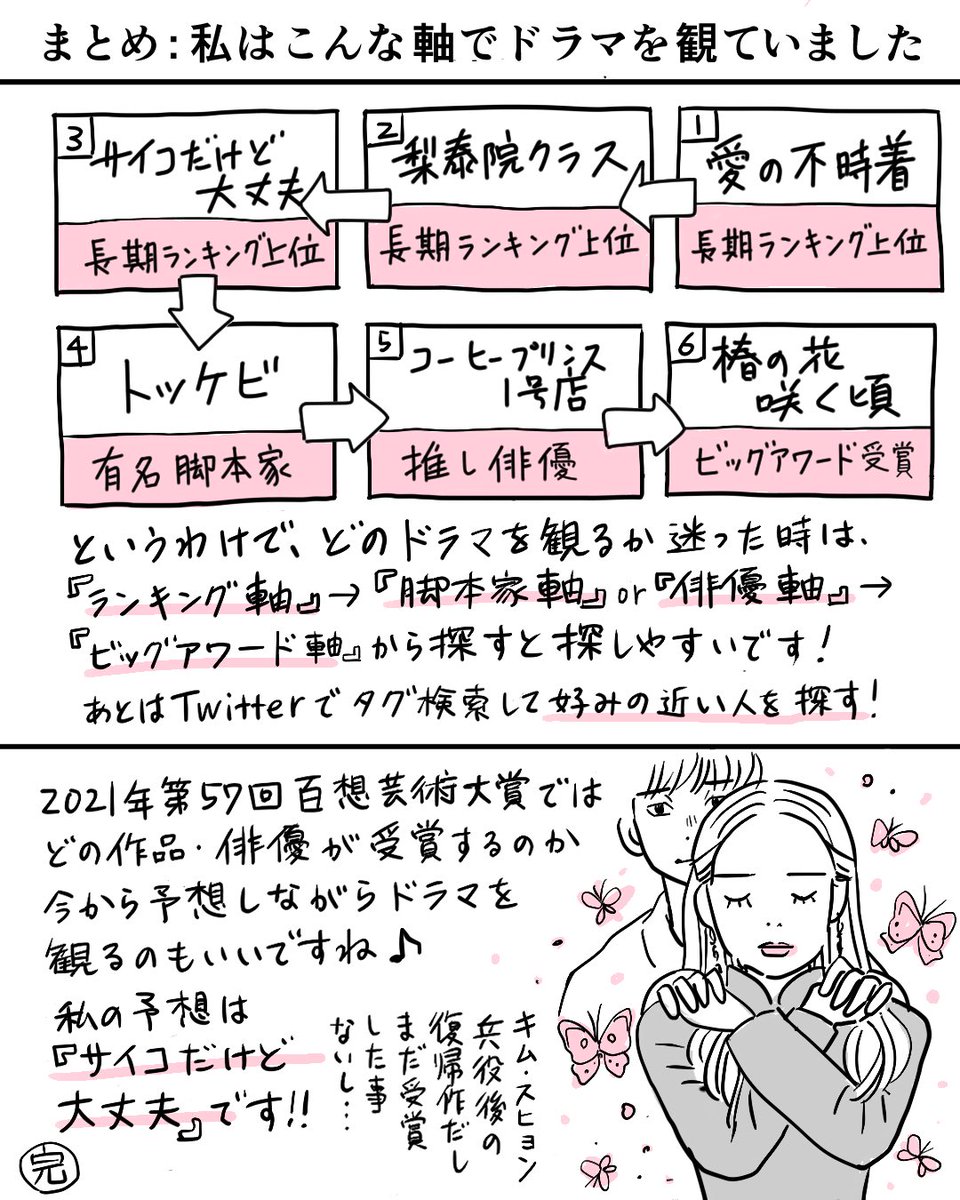 まとめ:私はこんな軸でドラマを観ていました
1
愛の不時着
長期ランキング上位
2
梨泰院クラス
長期ランキング上位
3
サイコだけど
大丈夫
長期ランキング上位
4
トッケビ
有名脚本家
5
コーヒープリンス
1号店
推し俳優
6
椿の花
咲く頃
ビッグアワード受賞
というわけで、どのドラマを観るか迷った時は、
『ランキング軸』→『脚本家軸』or『俳優軸』→
『ビッグアワード軸』から探すと探しやすいです!
あとはTwitterでタグ検索して好みの近い人を探す!
2021年第57回百想芸術大賞では
どの作品・俳優が受賞するのか
今から予想しながらドラマを
観るのもいいですね♪
私の予想は
『サイコだけど
大丈夫』です!!
キム・スヒョン
兵役後の
復帰作だし
まだ受賞
した事
ないし…
完